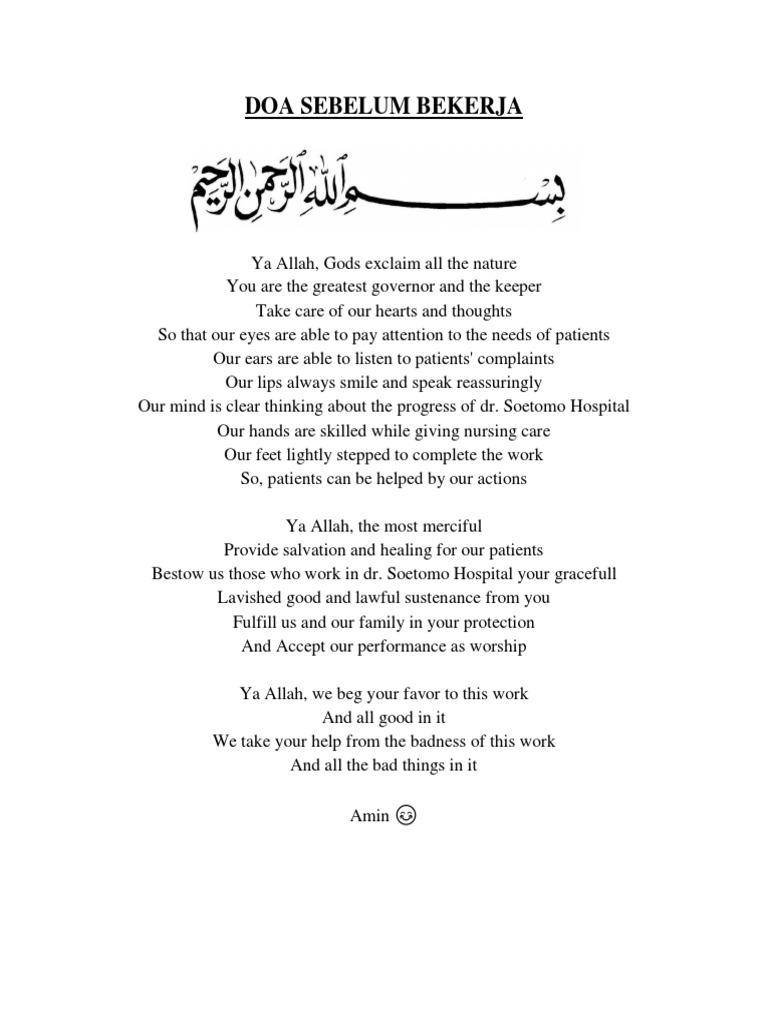 DOA SEBELUM BEKERJA
بِسْمِ اللهِ الرَّحْمٰنِ الرَّحِيْمِ
Ya Allah, Gods exclaim all the nature
You are the greatest governor and the keeper
Take care of our hearts and thoughts
So that our eyes are able to pay attention to the needs of patients
Our ears are able to listen to patients' complaints
Our lips always smile and speak reassuringly
Our mind is clear thinking about the progress of dr. Soetomo Hospital
Our hands are skilled while giving nursing care
Our feet lightly stepped to complete the work
So, patients can be helped by our actions
Ya Allah, the most merciful
Provide salvation and healing for our patients
Bestow us those who work in dr. Soetomo Hospital your gracefull
Lavished good and lawful sustenance from you
Fulfill us and our family in your protection
And Accept our performance as worship
Ya Allah, we beg your favor to this work
And all good in it
We take your help from the badness of this work
And all the bad things in it
Amin 😊